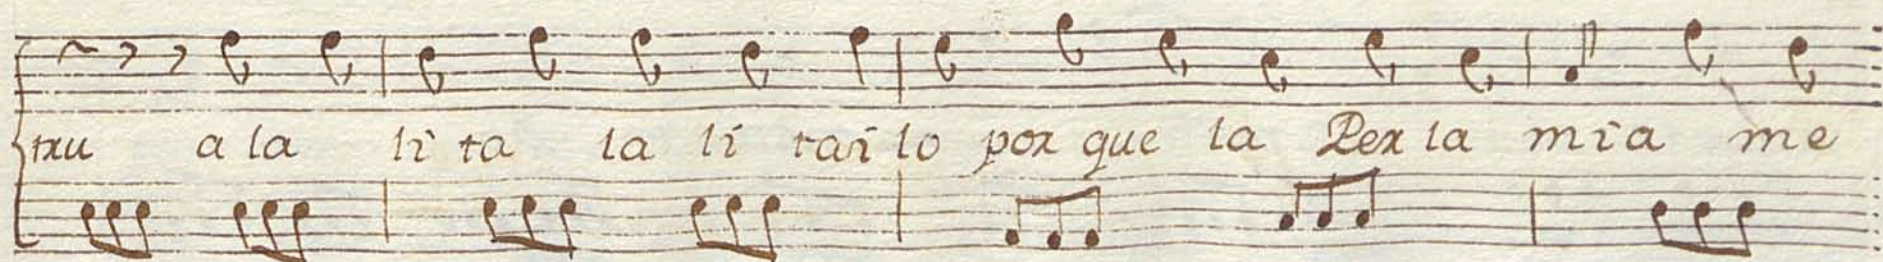 tru a la li ta la li tai lo por que la Per la mia me